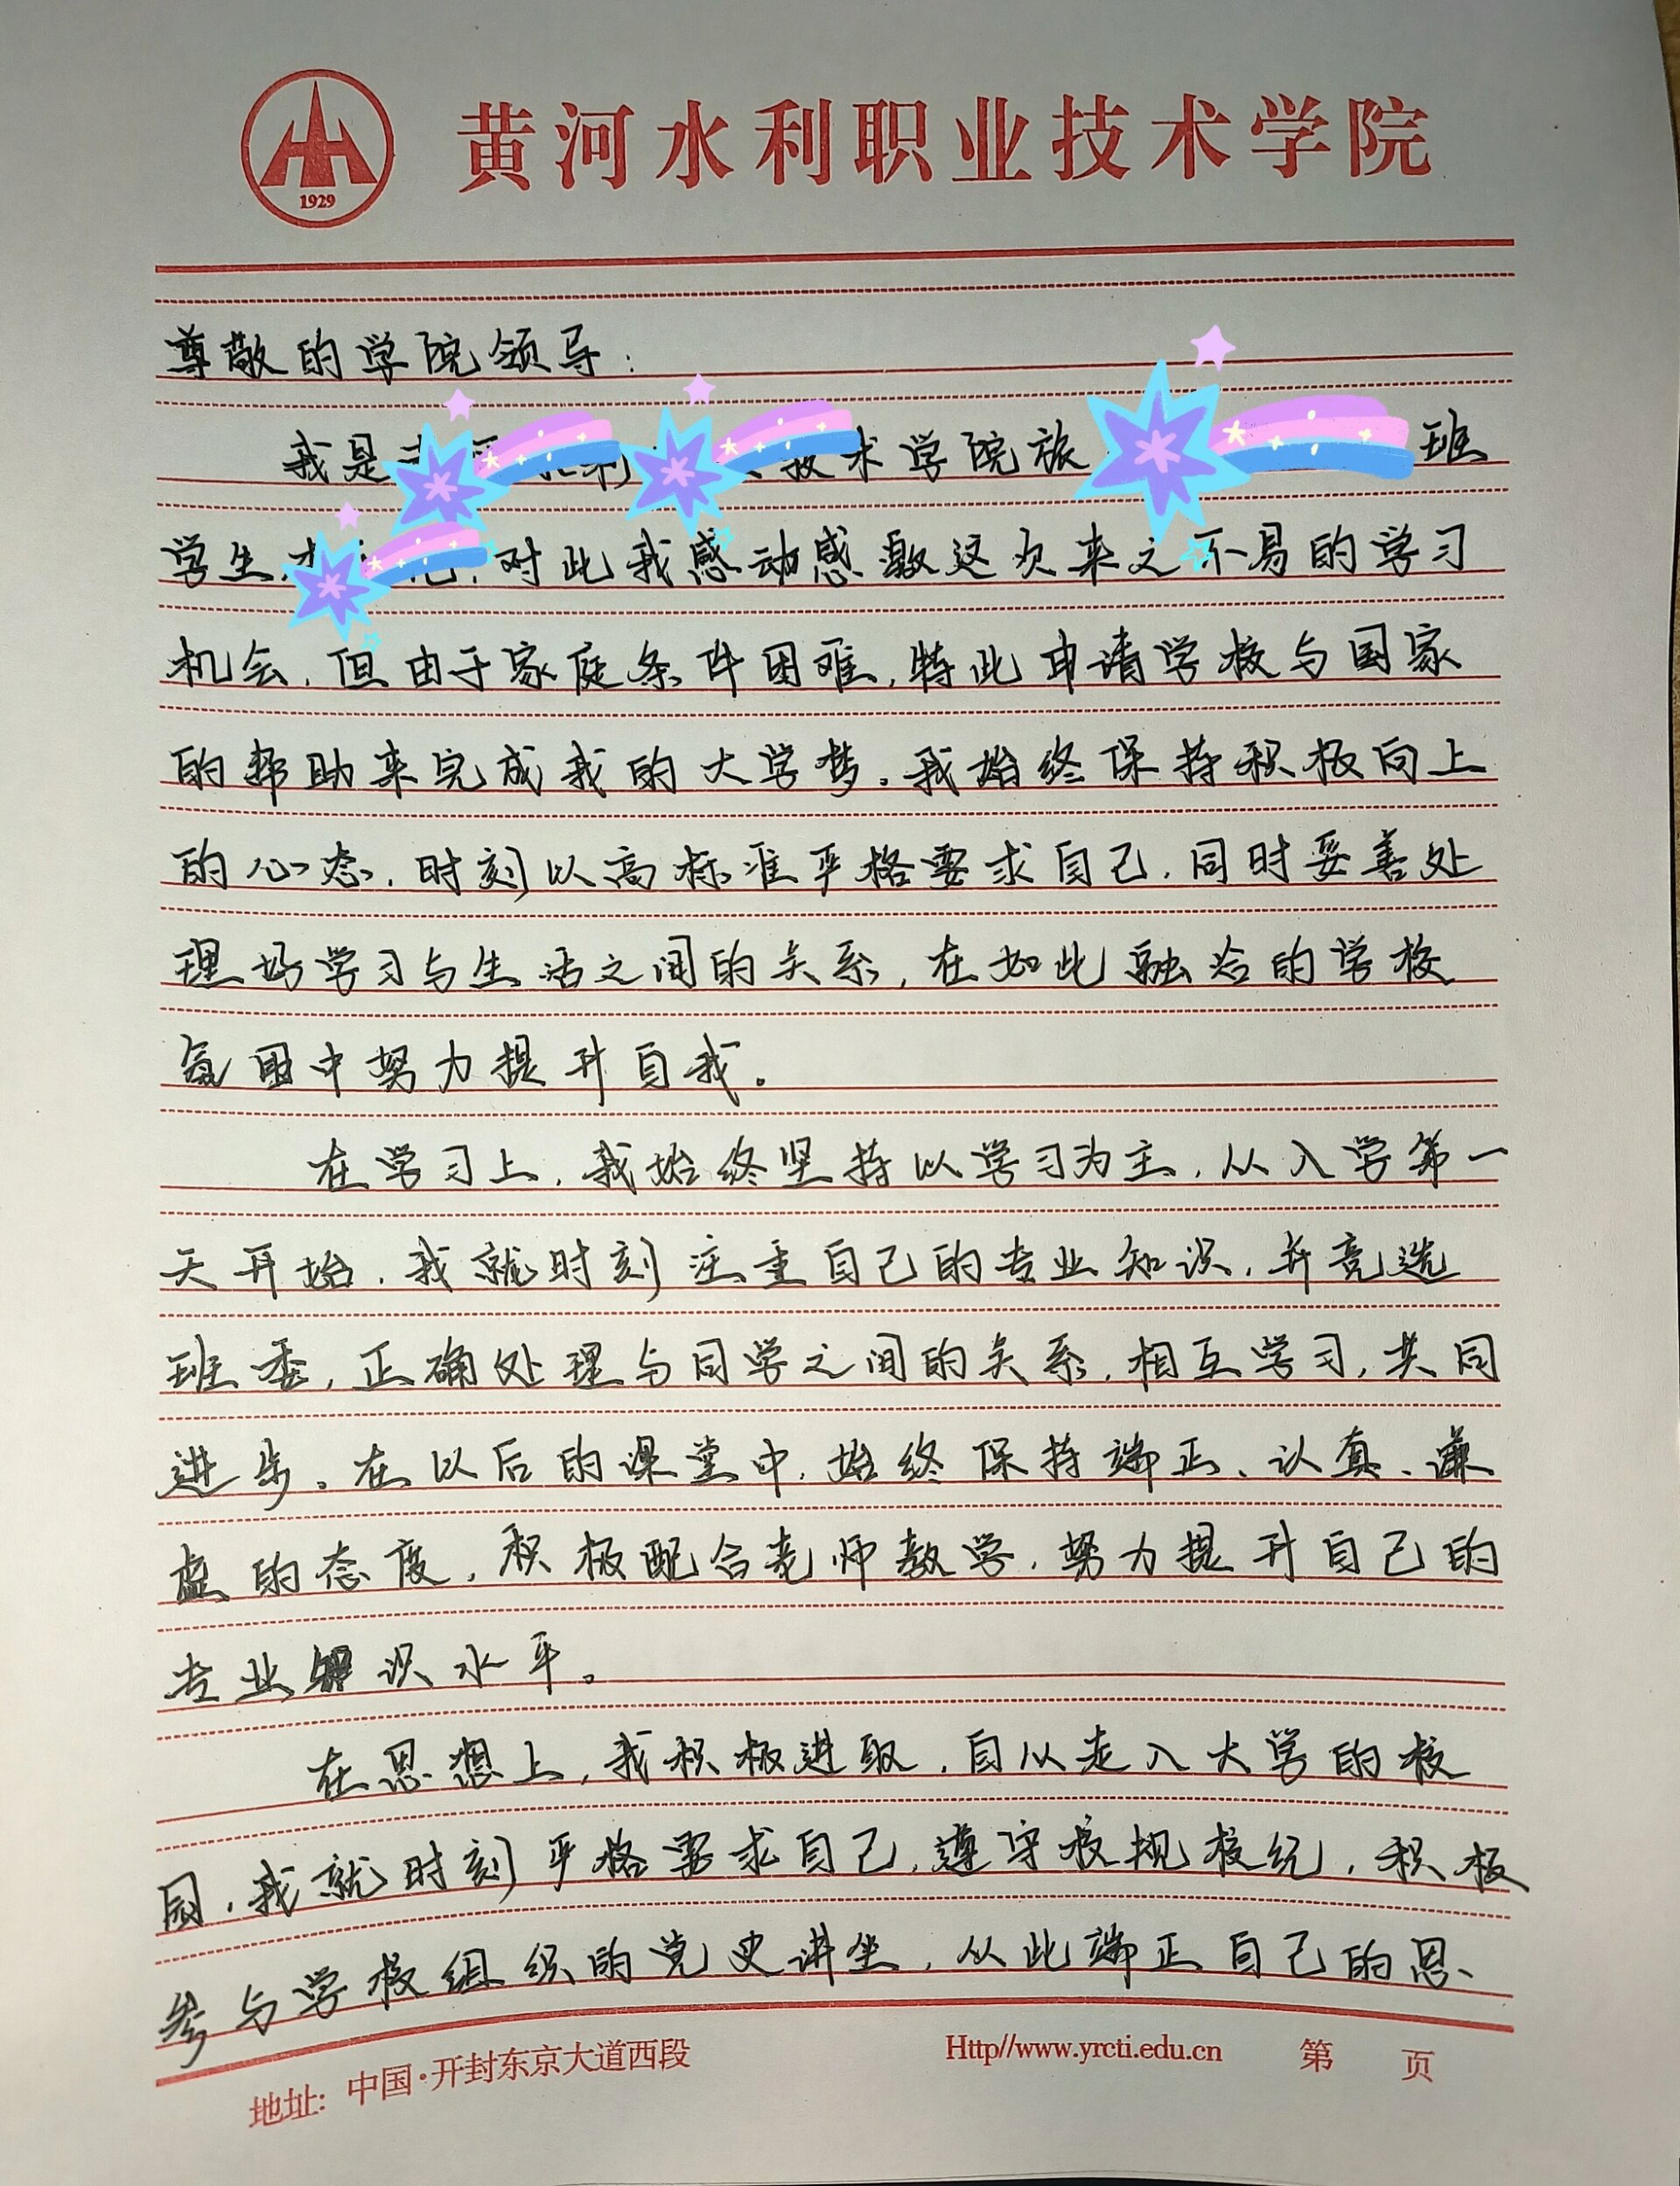 黄河水利职业技术学院
1929
尊敬的学院领导：
我是 技术学院旅 班
学生 ，对此我感动感激这次来之不易的学习
机会，但由于家庭条件困难，特此申请学校与国家
的帮助来完成我的大学梦。我始终保持积极向上
的心态，时刻以高标准严格要求自己，同时妥善处
理好学习与生活之间的关系，在如此融洽的学校
氛围中努力提升自我。
在学习上，我始终坚持以学习为主，从入学第一
天开始，我就时刻注重自己的专业知识，并竞选
班委，正确处理与同学之间的关系，相互学习，共同
进步。在以后的课堂中，始终保持端正、认真、谦
虚的态度，积极配合老师教学，努力提升自己的
专业知识水平。
在思想上，我积极进取，自从走入大学的校
园，我就时刻严格要求自己，遵守校规校纪，积极
参与学校组织的党史讲坐，从此端正自己的思、
地址：中国·开封东京大道西段 Http//www.yrcti.edu.cn 第 页